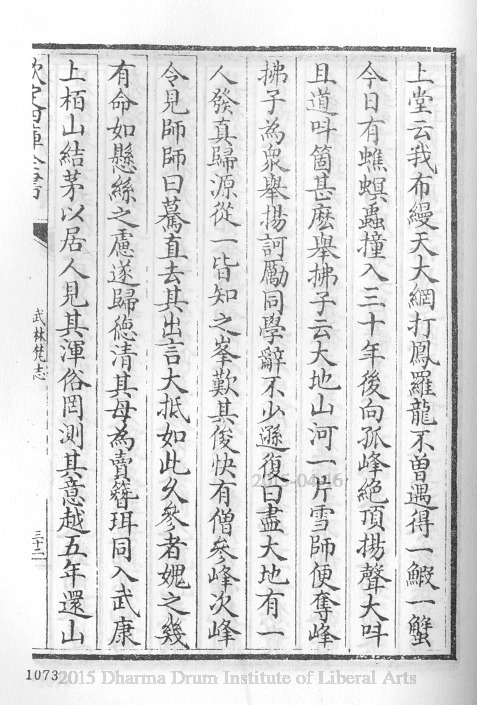 上堂云我布縵天大網打鳳羅龍不曽遇得一鰕一蟹
今日有蟭螟蟲撞入三十年後向孤峰絶頂揚聲大呌
且道呌箇甚麽舉拂子云大地山河一片雪師便奪峰
拂子為衆舉揚訶勵同學辭不少遜復曰盡大地有一
人發真歸源從一皆知之峯歎其俊快有僧參峰次峰
令見師師曰驀直去其出言大抵如此久參者媿之幾
有命如懸絲之慮遂歸徳清其母為賣簪珥同入武康
上栢山結茅以居人見其渾俗罔測其意越五年還山
欽定四庫全書
武林梵志
三十二
2015-04-16
1073
2015 Dharma Drum Institute of Liberal Arts